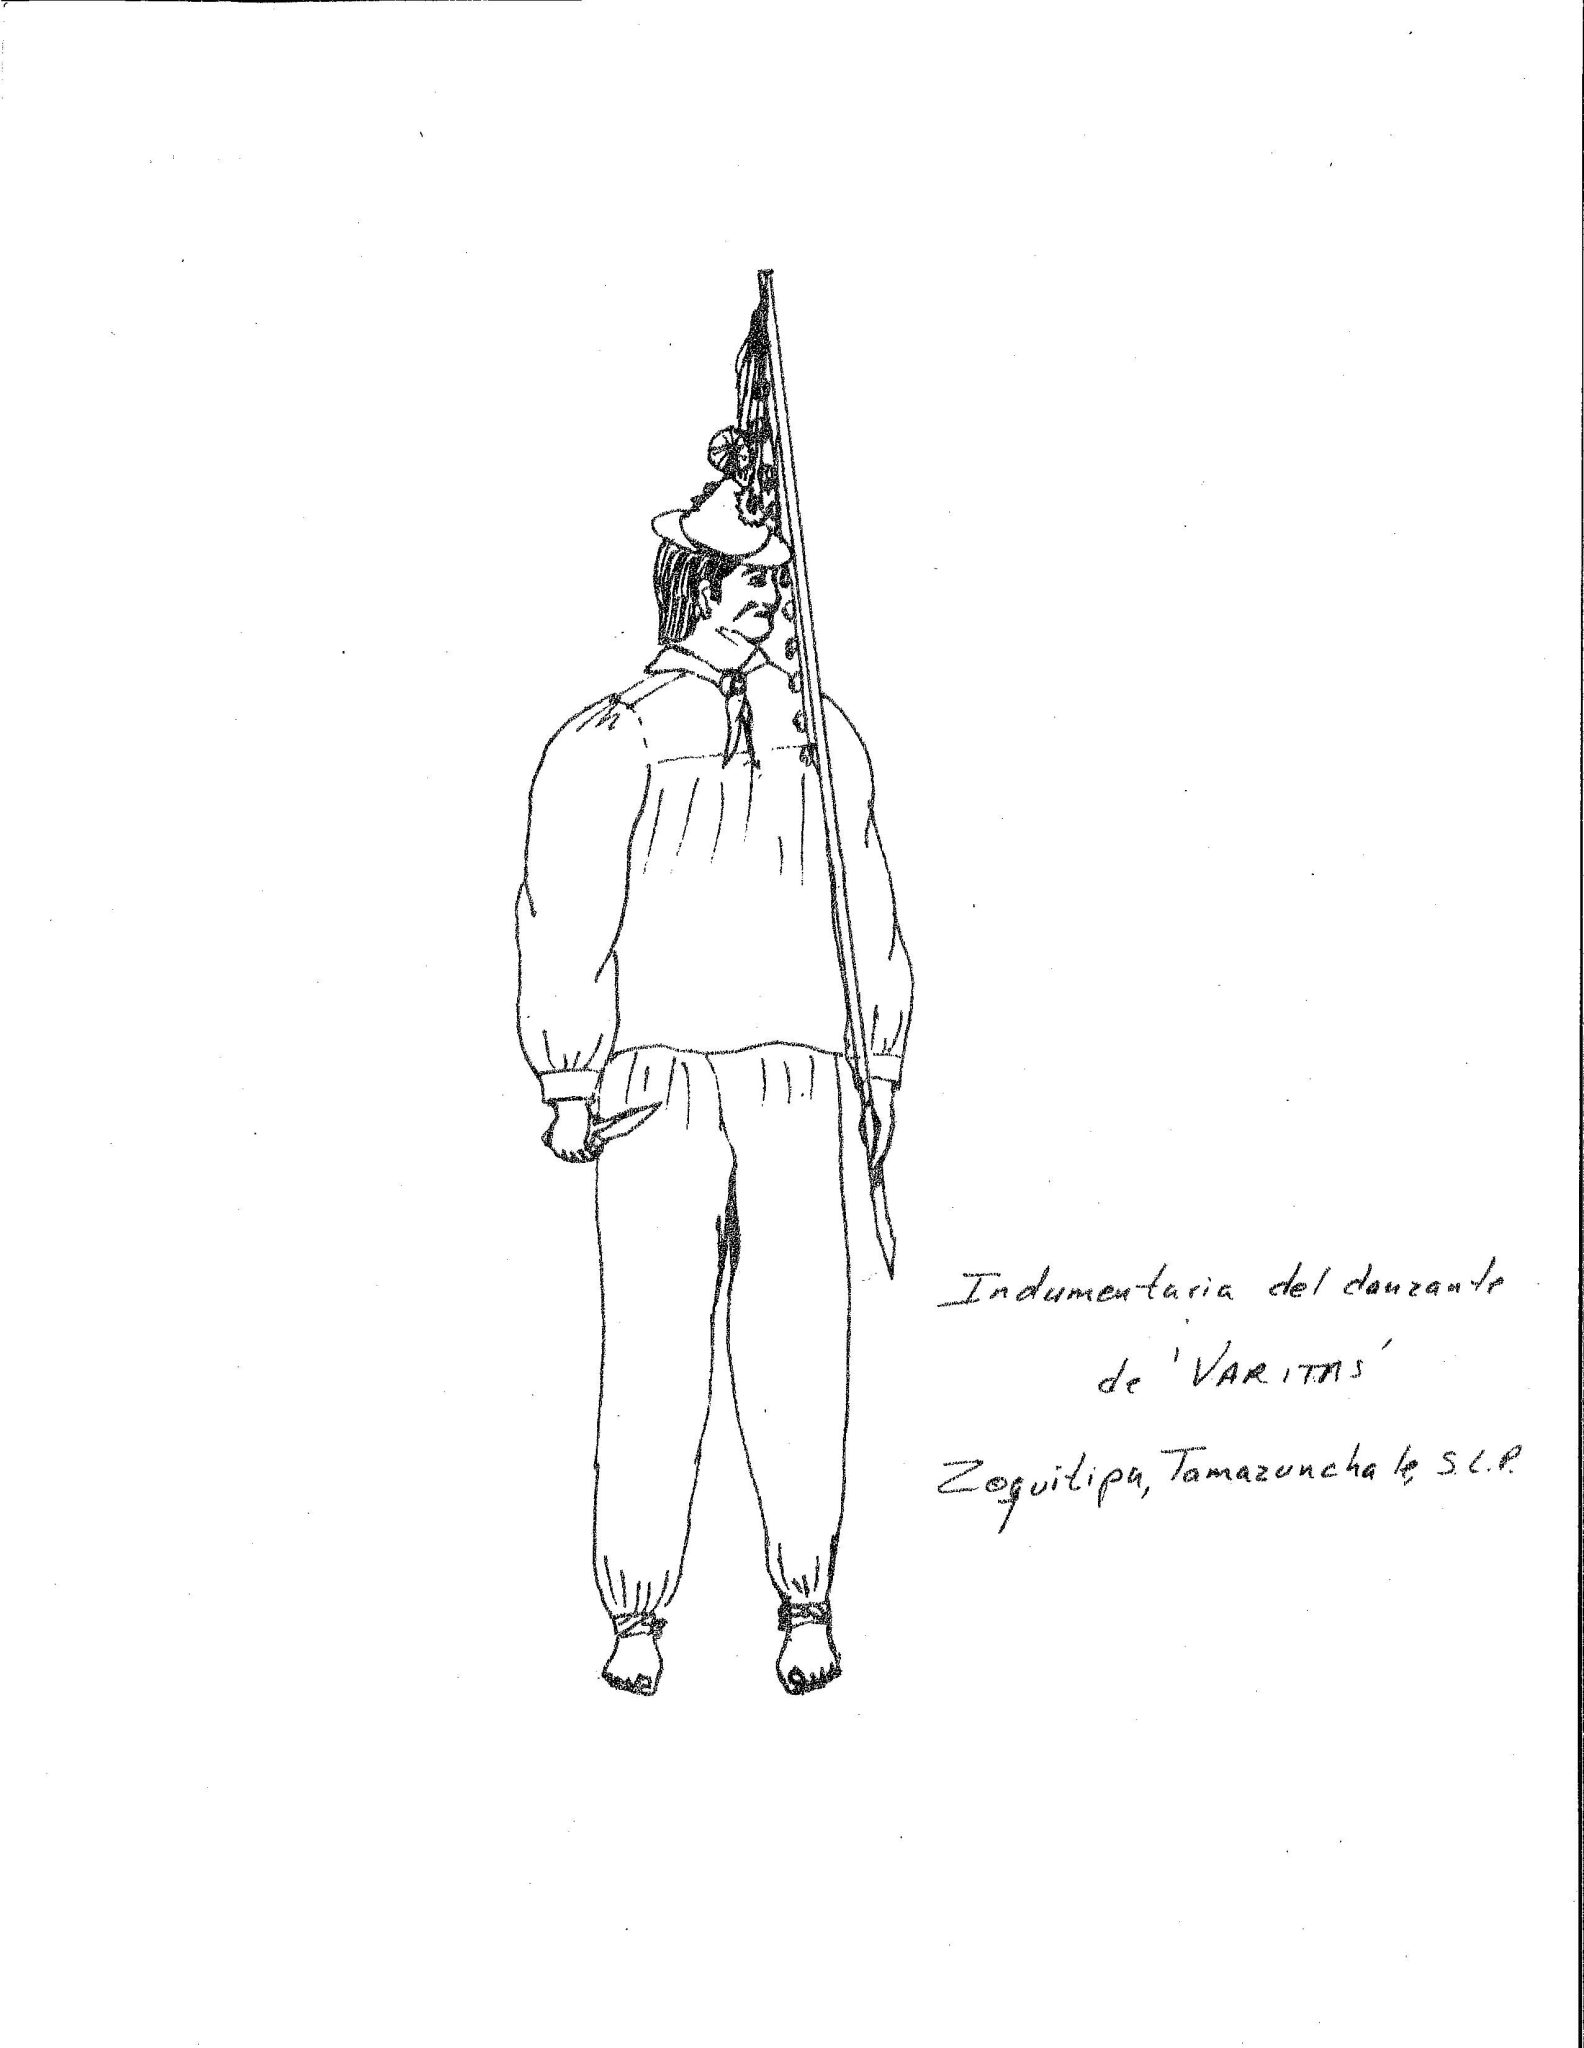 Indumentaria del danzante
de 'VARITAS'
Zoquitipa, Tamazunchale, S.L.P.